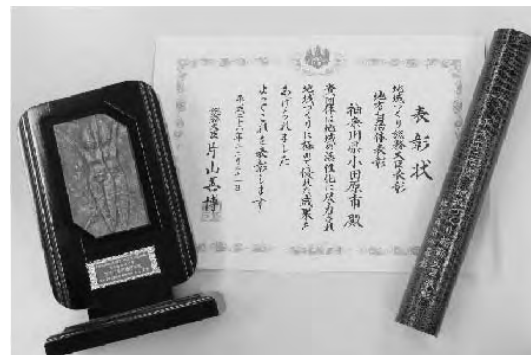 表彰状
地域づくり総務大臣表彰
地方自治体表彰
神奈川県小田原市殿
貴団体は地域の活性化に尽力され
地域づくりに極めて優れた成果を
あげられました
よってこれを表彰します
平成二十
総務大臣 片山善博